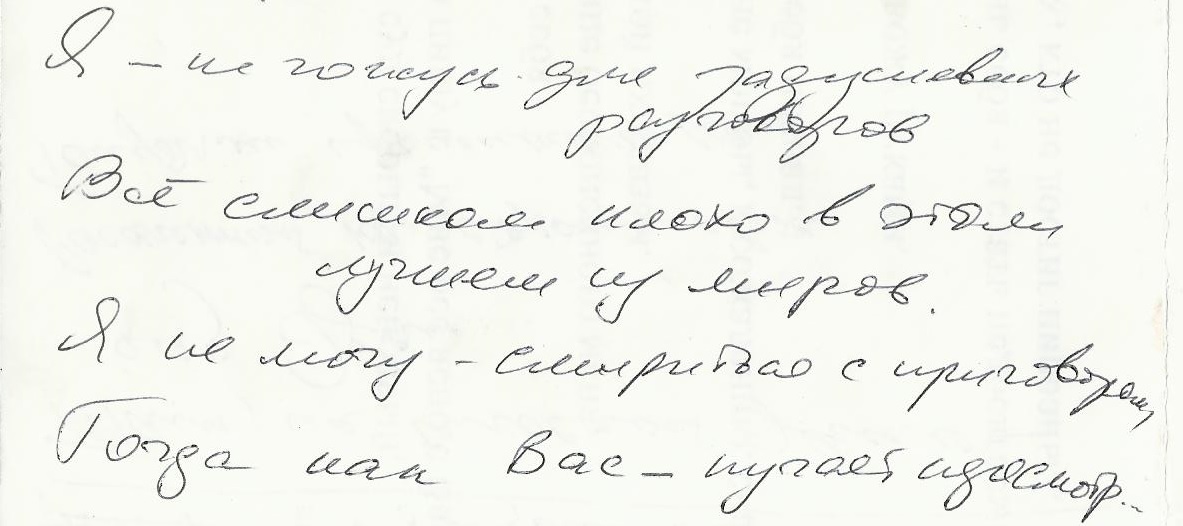 Я – не гожусь для задушевных
разговоров
Всё слишком плохо в этом
лучшем из миров.
Я не могу – смириться с приговором,
Тогда как Вас – пугает